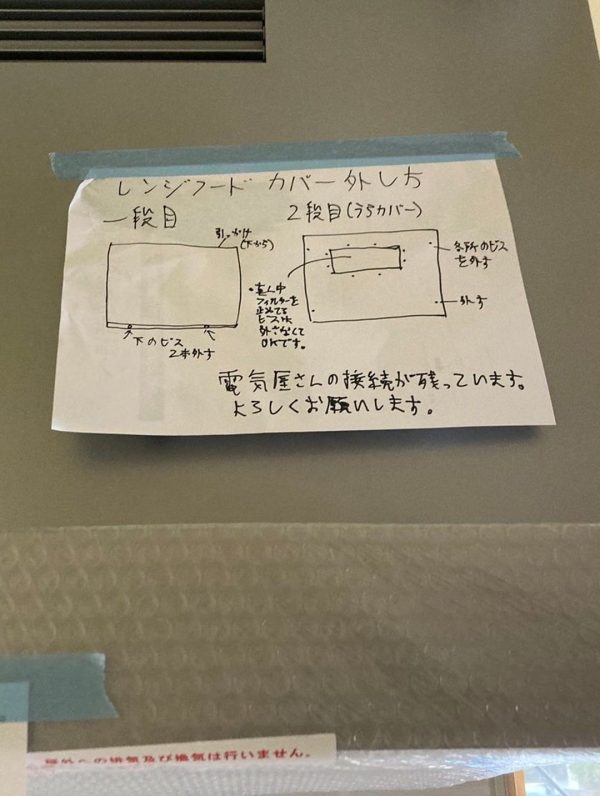 レンジフード カバー外し方
一段目
2段目(うらカバー)
引っかけ
(下から)
下のビス
2本外す
・真ん中
フィルターを
止めてる
ビスは
外さなくて
OKです。
各所のビス
を外す
外す
電気屋さんの接続が残っています。
よろしくお願いします。
屋外への排気及び換気は行いません。